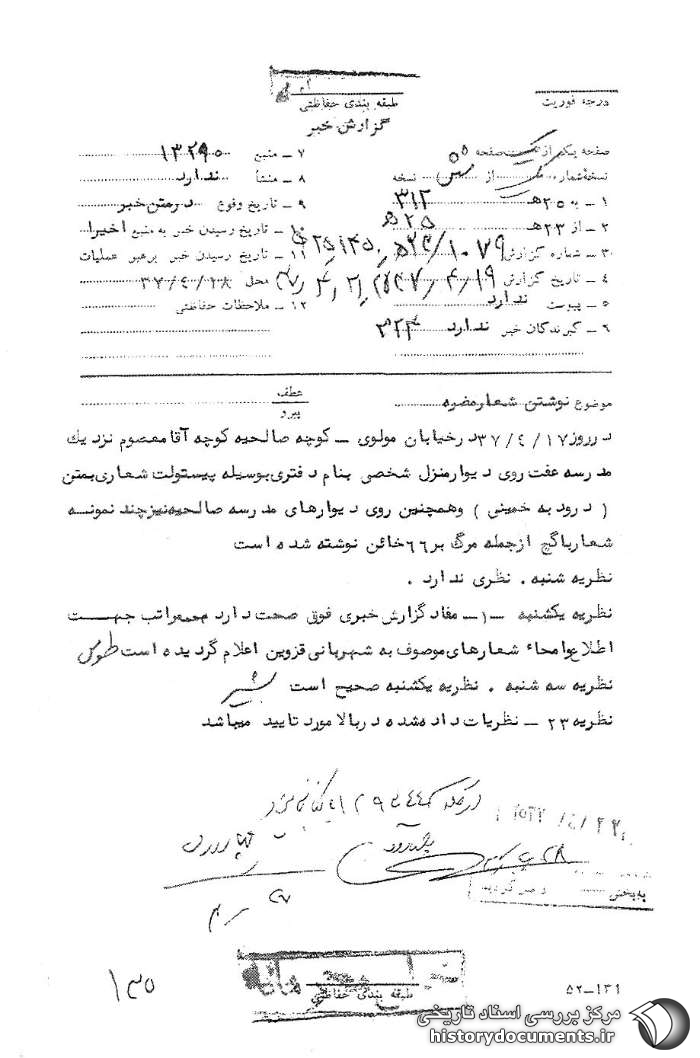 درجه فوریت
طبقه بندی حفاظتی
گزارش خبر
صفحه یکم از یک صفحه
نسخه شماره از نسخه
۱ - به ۲۵۰ هـ ۳۱۲
۲ - از ۲۳ هـ ۲۵
۳ - شماره گزارش ۱۰۷۹
۴ - تاریخ گزارش ۱۹ / ۴ / ۲۵۳۷
۵ - پیوست ندارد
۶ - گیرندگان خبر ندارد ۳۲۴
۷ - منبع ۱۳۲۹۰
۸ - منشأ ندارد
۹ - تاریخ وقوع درمتن خبر
۱۰ - تاریخ رسیدن خبر به منبع اخیرا
۱۱ - تاریخ رسیدن خبر برهبر عملیات
محل ۳۷/۴/۱۸
۱۲ - ملاحظات حفاظتی
موضوع نوشتن شعارمضره
عطف
پیرو
درروز ۳۷/٤/۱۷ درخیابان مولوی – کوچه صالحیه کوچه آقامعصوم نزدیك
مدرسه عفت روی دیوارمنزل شخصی بنام دفتری بوسیله پیستولت شعاری بمتن
( درود به خمینی ) وهمچنین روی دیوارهای مدرسه صالحیه نیزچند نمونه
شعارباگچ ازجمله مرگ بر ٦٦ خائن نوشته شده است
نظریه شنبه . نظری ندارد .
نظریه یکشنبه –۱– مفاد گزارش خبری فوق صحت دارد مراتب جهت
اطلاع وامحاء شعارهای موصوف به شهربانی قزوین اعلام گردیده است طوسی
نظریه سه شنبه . نظریه یکشنبه صحیح است
نظریه ۲۳ – نظریات داده شده دربالا مورد تایید میباشد
به بخش
طبقه بندی حفاظتی
۱۳۵
۵۲-۱۳۱
مرکز بررسی اسناد تاریخی
historydocuments.ir